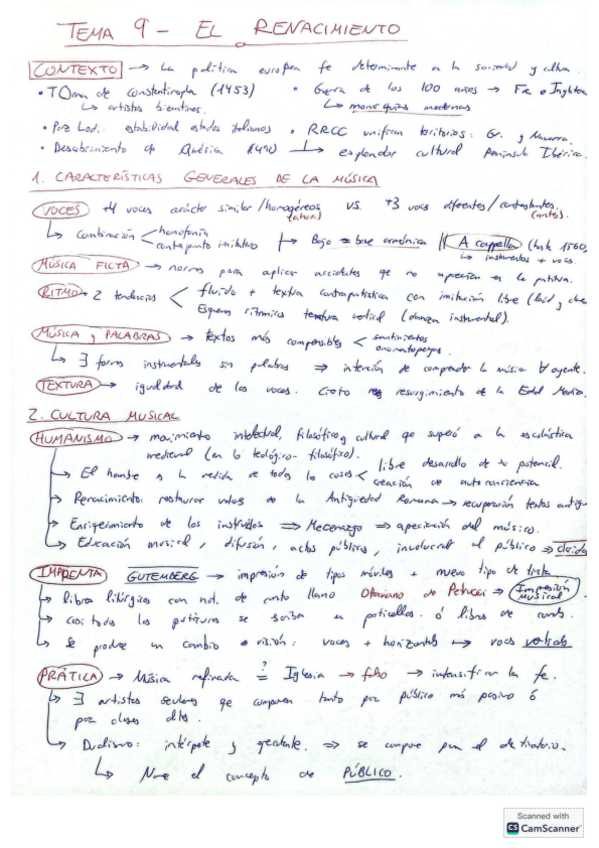 TEMA 9 - EL RENACIMIENTO
CONTEXTO → La política europea fe determinante en la sociedad y cultura.
• TOma de Constantinopla (1453) • Guerra de los 100 años → Fr e Inglaterra
↳ artistas bizantinos. ↳ monarquías modernas
• Paz Lodi: estabilidad estados italianos • RRCC unifican territorios: Gr. y Navarra.
• Descubrimiento de América → esplendor cultural Península Ibérica.
1. CARACTERÍSTICAS GENERALES DE LA MÚSICA
VOCES → +4 voces carácter similar/homogéneos (ahora) vs. +3 voces diferentes/contrastantes. (antes).
↳ Combinación < homofonía contrapunto imitativo → Bajo = base armónica || A cappella (hasta 1560)
↳ instrumentos + vocs.
MÚSICA FICTA → normas para aplicar accidentes que no aparecían en la partitura.
RITMO → 2 tendencias < fluido + textura contrapuntística con imitación libre
Esquemas rítmicos textura vertical (danza instrumental).
MÚSICA y PALABRAS → textos más comprensibles < sentimientos onomatopeyas.
↳ ∃ formas instrumentales sin palabras ⇒ intención de comprender la música ∀ oyente.
TEXTURA → igualdad de las voces. Cierto resurgimiento de la Edad Media.
2. CULTURA MUSICAL
HUMANISMO → movimiento intelectual, filosófico y cultural que superó a la escolástica
medieval (en lo teológico-filosófico).
→ El hombre es la medida de todas las cosas < libre desarrollo de su potencial.
creación de autoconciencia
→ Renacimiento: restaurar valores de la Antigüedad Romana → recuperación textos antig
→ Enriquecimiento de los ⇒ Mecenazgo ⇒ apreciación del músico.
↳ Educación musical, difusión, actos públicos, involucrar al público ⇒
IMPRENTA GUTEMBERG → impresión de tipos móviles + nuevo tipo de tinta
→ libros litúrgicos con not. de canto llano Ottaviano de Petrucci → Impresión Musical
→ casi todas las partituras se escribían en particellas. ó libros de
↳ Se produce un cambio visión: voces + horizontales → vocs verticales
PRÁTICA → Música refinada =? Iglesia → falso → intensificar la fe.
→ ∃ artistas seculares que componen tanto por público más pasivo ó
por clases altas.
↳ Dualismo: intérpete y ⇒ se compone para el
↳ Nace el concepto de PÚBLICO.
Scanned with
CS CamScanner